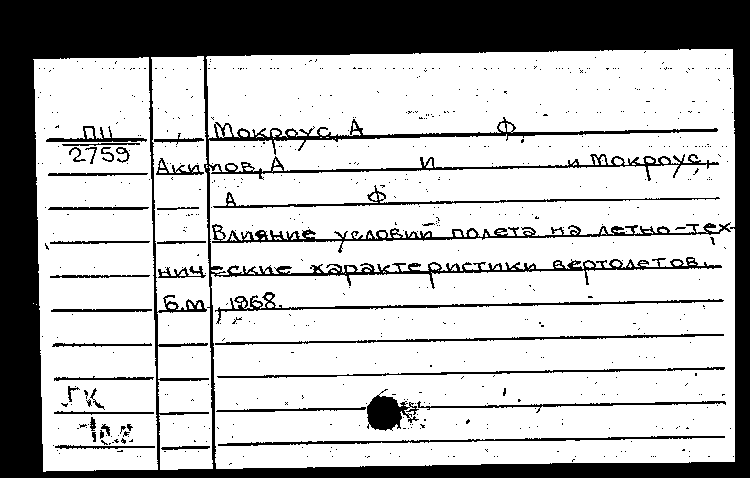 ПП Мокроус, А Ф.
2759 Акимов, А И и Мокроус,
А Ф
Влияние условий полета на летно-тех-
нические характеристики вертолетов.
Б.м., 1968.